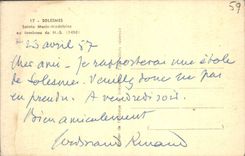 59
17 - SOLESMES
Sainte Marie-Madeleine
au tombeau de N.-S. (1496)
23 avril 57
Cher ami - Je rapporterai une étole
de Solesmes. Veuillez donc ne pas
en prendre. A vendredi soir.
Bien amicalement